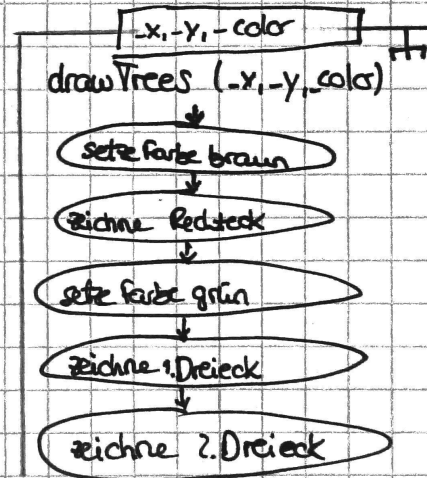 _x,_y,_color
drawTrees (_x,_y,_color)
setze Farbe braun
zeichne Rechteck
setze Farbe grün
zeichne 1.Dreieck
zeichne 2.Dreieck